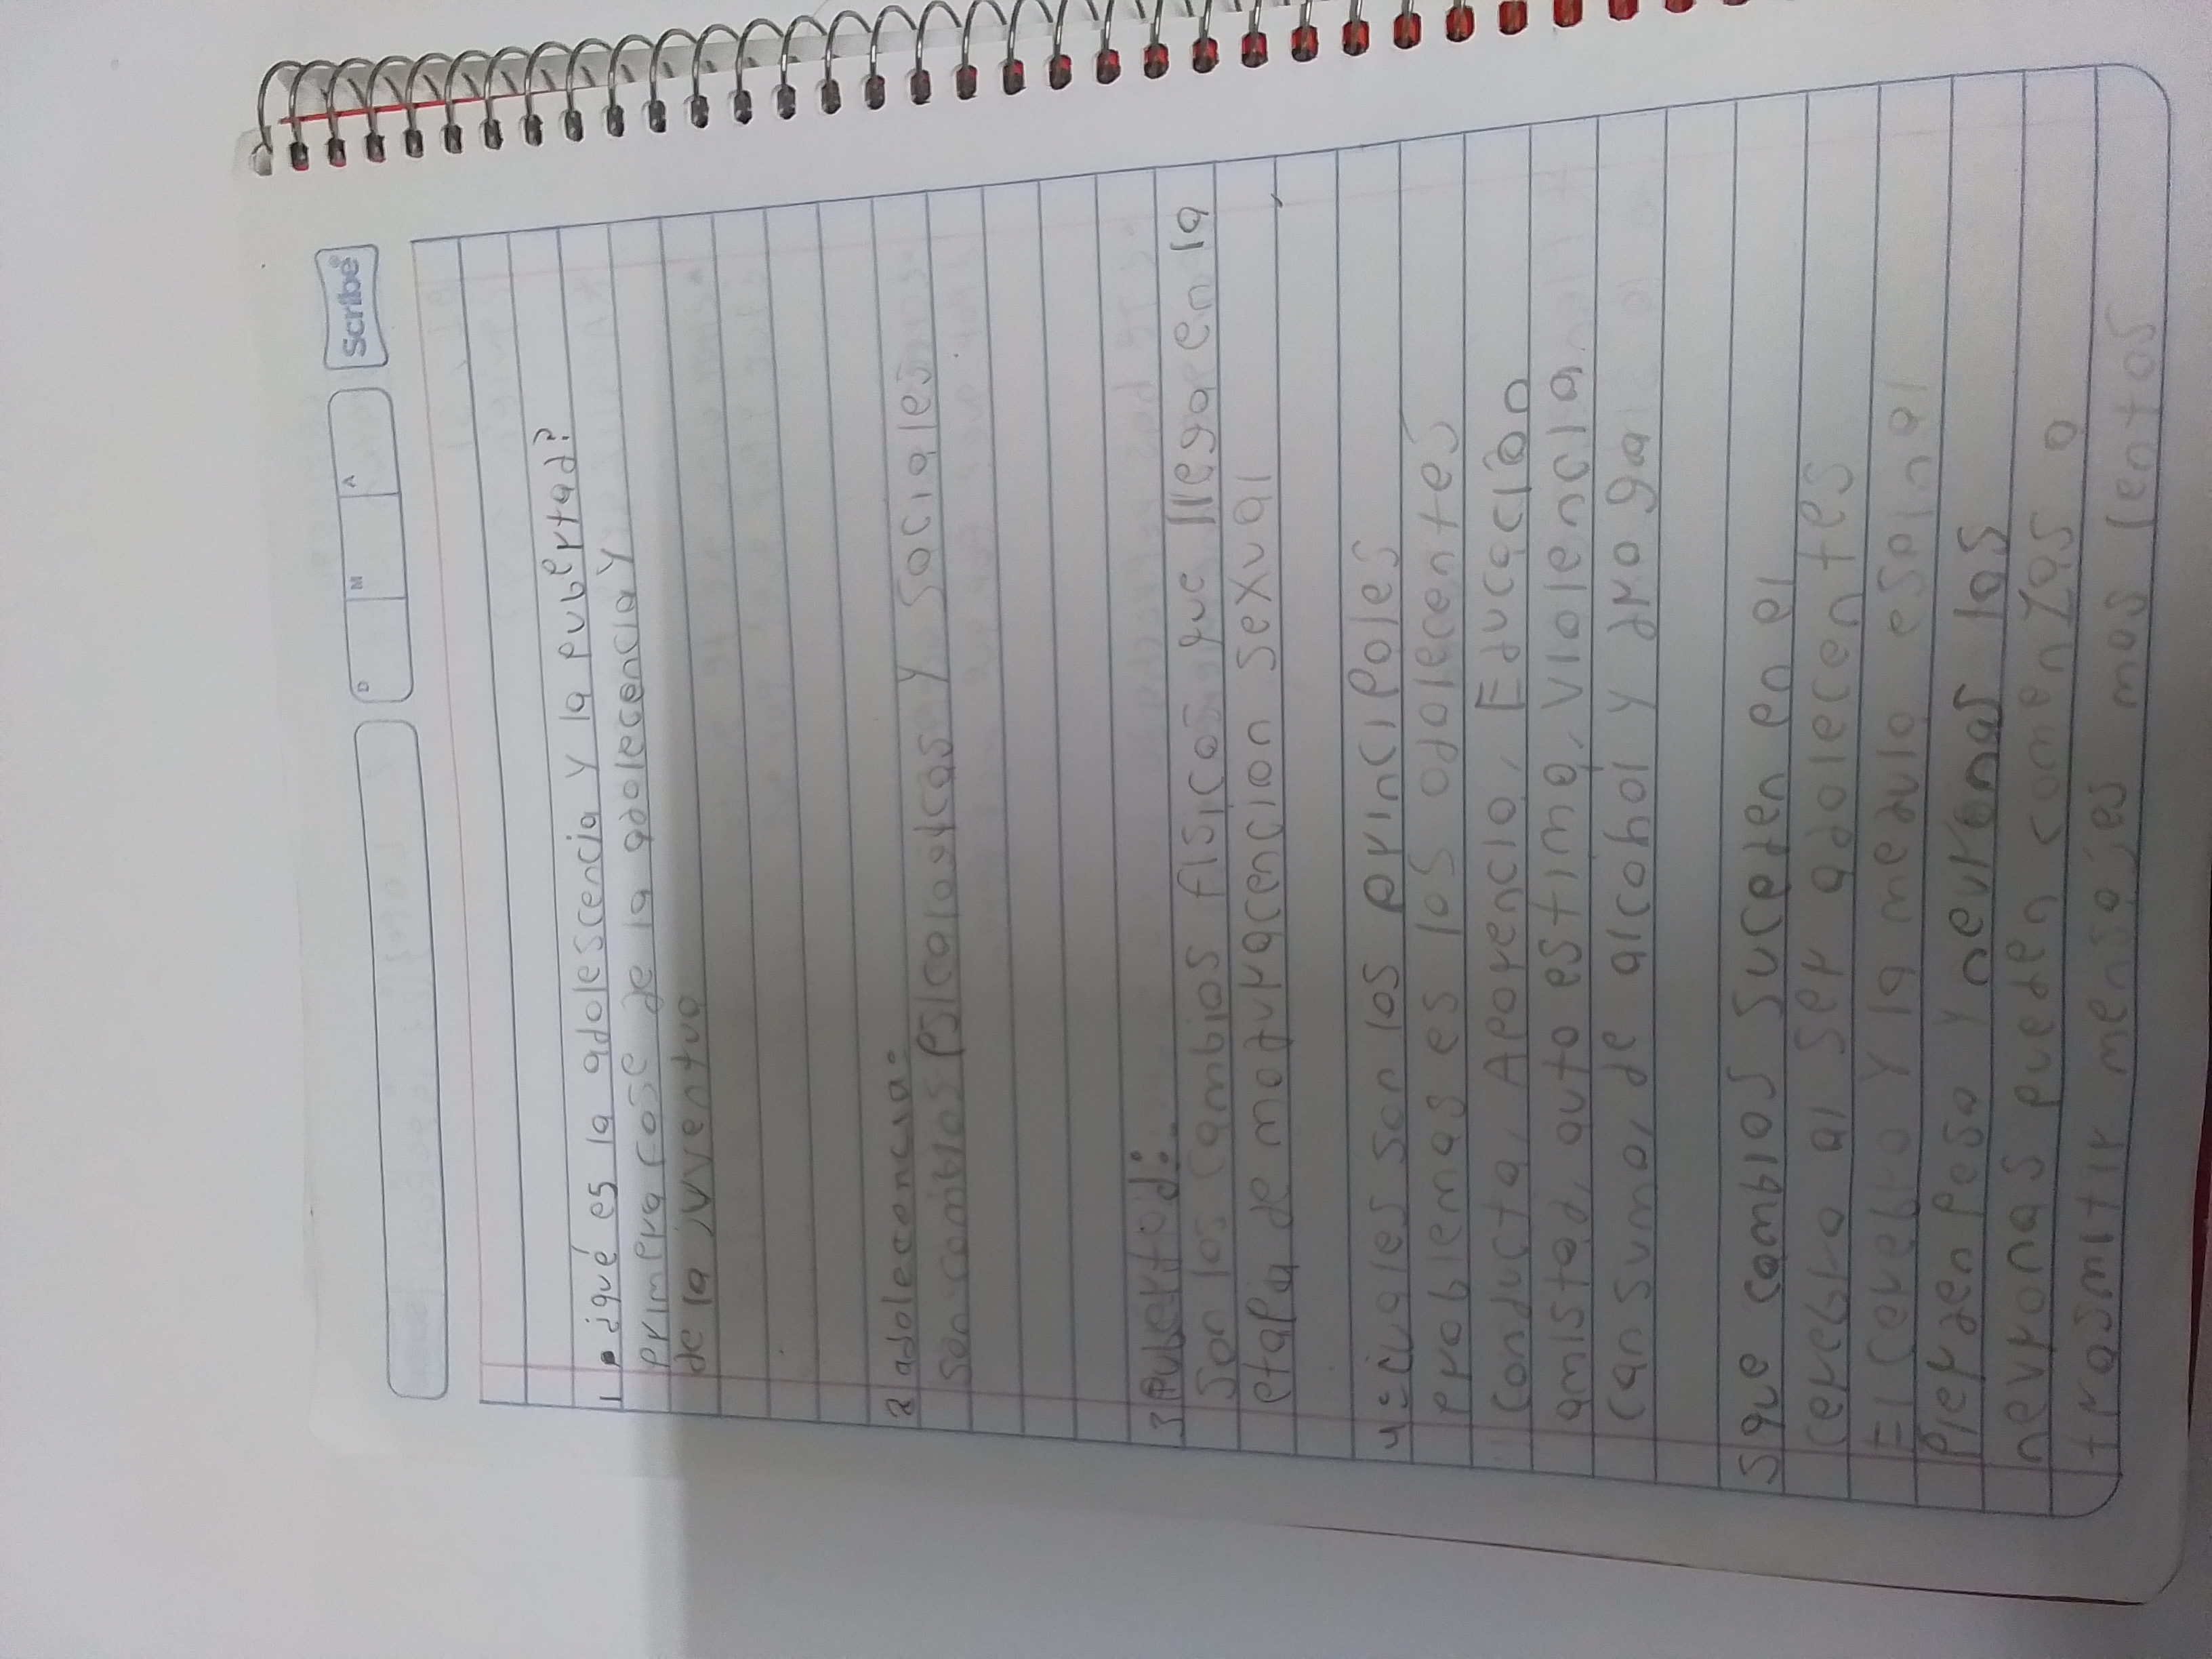 Scribe®
D M A
1. ¿qué es la adolescencia y la pubertad?
primera fase de la adolecencia y
de la juventua
2 adolecencia:
son cambios psicalogicas y sociales
3 Pubertad:
Son los cambios fisicos que llega en la
etapa de maduracencion sexual
4: cuales son los principoles
problemas es los adolecentes
Conducta, Aparencio, Educación
amistad, auto estima, violencia
cansumo, de alcohol y droga
5 que cambios suceden en el
cerebro al ser adolecentes
El cerebro y la medulo espinal
pierden peso y neuronas las
neuronas pueden comenzas a
trasmitir mensajes mas lentos